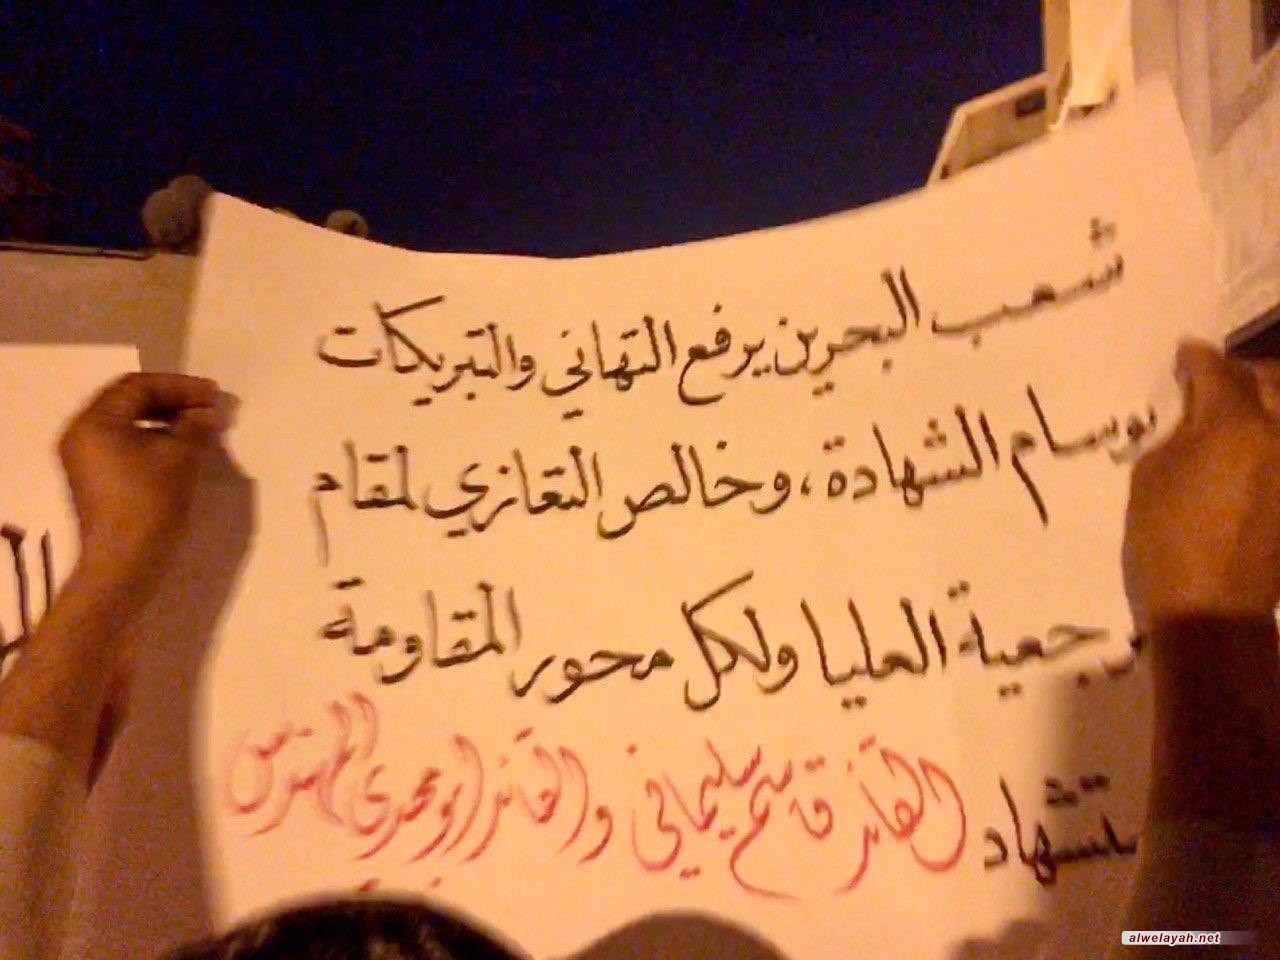 شعب البحرين يرفع التهاني والتبريكات
بوسام الشهادة، وخالص التعازي لمقام
رجعية العليا ولكل محور المقاومة
ستشهاد القائد قاسم سليماني والقائد ابو مهدي المهندس
alwelayah.net